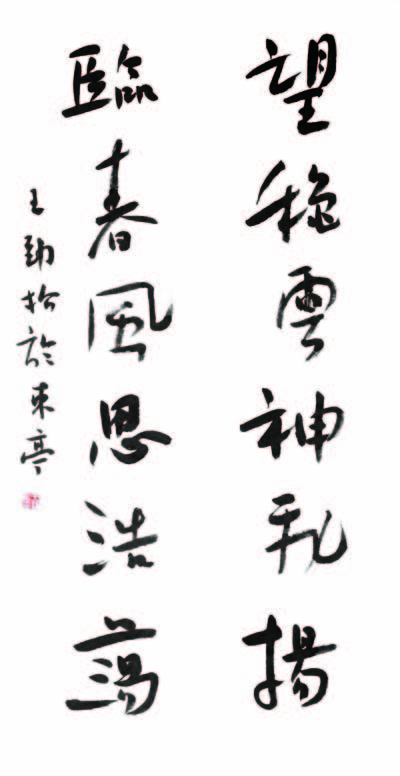 望秋雲神飛揚
臨春風思浩蕩
王勁松於東亭